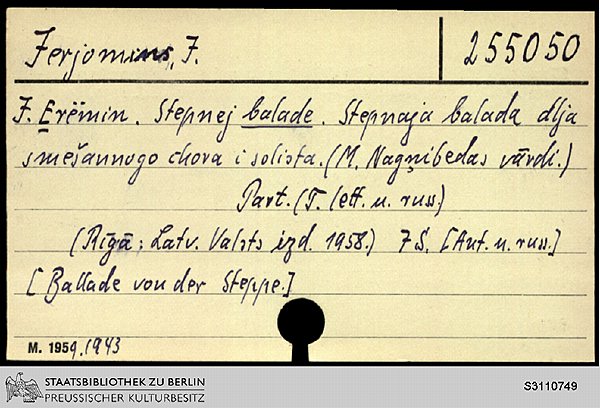 Jerjomins, J. 255050
J. Erëmin. Stepnej balade. Stepnaja balada dlja
smešannogo chora i solista. (M. Nagņibedas vārdi.)
Part. (T. lett. u. russ.)
(Rīgā: Latv. Valsts izd. 1958.) 7 S. [Aut. u. russ.]
[Ballade von der Steppe.]
M. 1959.1943
STAATSBIBLIOTHEK ZU BERLIN
PREUSSISCHER KULTURBESITZ
S3110749